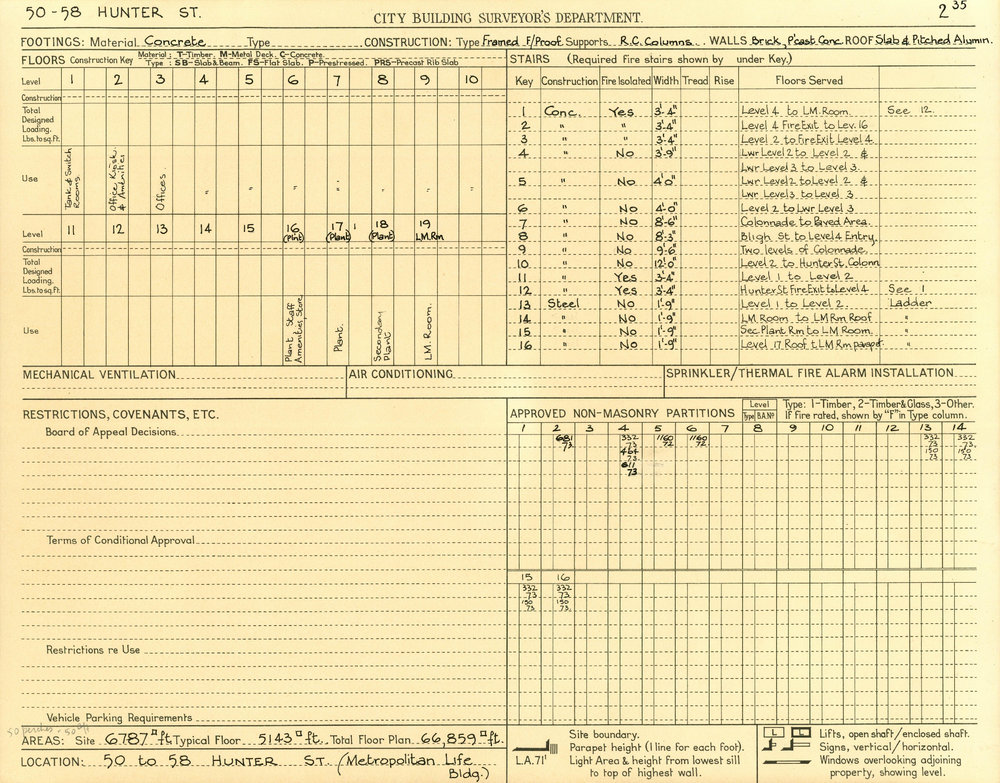 50-58 HUNTER ST.
CITY BUILDING SURVEYOR'S DEPARTMENT.
2 35
FOOTINGS: Material Concrete Type CONSTRUCTION: Type Framed F/Proof Supports R.C. Columns WALLS Brick, P'cast Conc ROOF Slab & Pitched Alumin.
FLOORS Construction Key Material: T-Timber. M-Metal Deck. C-Concrete.
Type: SB-Slab & Beam. FS-Flat Slab. P-Prestressed. PRS-Precast Rib Slab
Level 1 2 3 4 5 6 7 8 9 10
Construction
Total
Designed
Loading.
Lbs. to sq. ft.
Use
Tank & Switch Rooms
Office, Kiosk, & Amenities
Offices
" " " " " " "
Level 11 12 13 14 15 16 (Plnt) 17 (Plant) 18 (Plant) 19 L.M. Rm
Construction
Total
Designed
Loading.
Lbs. to sq. ft.
Use
Plant Staff Amenities, Store
Plant.
Secondary Plant.
L.M. Room.
STAIRS (Required Fire stairs shown by under Key.)
Key Construction Fire Isolated Width Tread Rise Floors Served
1 Conc. Yes 3'-4" Level 4 to L.M. Room. See 12.
2 " " 3'-4" Level 4 Fire Exit to Lev. 16
3 " " 3'-4" Level 2 to Fire Exit Level 4.
4 " No 3'-9" Lwr Level 2 to Level 2 &
Lwr Level 3 to Level 3.
5 " No 4'0" Lwr Level 2 to Level 2 &
Lwr Level 3 to Level 3
6 " No 4'-0" Level 2 to Lwr Level 3
7 " No 8'-6" Colonnade to Paved Area.
8 " No 8'-3" Bligh St to Level 4 Entry.
9 " No 9'-6" Two levels of Colonnade.
10 " No 12'-0" Level 2 to Hunter St. Colonn
11 " Yes 3'-4" Level 1 to Level 2
12 " Yes 3'-4" Hunter St Fire Exit to Level 4 See 1
13 Steel No 1'-9" Level 1 to Level 2. Ladder
14 " No 1'-9" LM Room to LM Rm Roof "
15 " No 1'-9" Sec. Plant Rm to LM Room. "
16 " No 1'-9" Level 17 Roof t. LM Rm parapet. "
MECHANICAL VENTILATION
AIR CONDITIONING
SPRINKLER/THERMAL FIRE ALARM INSTALLATION
RESTRICTIONS, COVENANTS, ETC.
Board of Appeal Decisions
Terms of Conditional Approval
Restrictions re Use
Vehicle Parking Requirements
APPROVED NON-MASONRY PARTITIONS
Level
Type B.A.Nº
Type: 1-Timber, 2-Timber & Glass, 3-Other.
If fire rated, shown by "F" in Type column.
1 2 3 4 5 6 7 8 9 10 11 12 13 14
681 332 1160 1160 332 332
73 73 72 72 73 73
464 150 150
73. 73 73.
611
73
15 16
332 332
73 73
150 150
73. 73.
50 perches
AREAS: Site 6787 □ft Typical Floor 5143 □ft. Total Floor Plan 66,859 □ft.
LOCATION: 50 to 58 HUNTER ST. (Metropolitan Life
Bldg.)
Site boundary.
Parapet height (1 line for each foot).
L.A.71' Light Area & height from lowest sill
to top of highest wall.
L L Lifts, open shaft/enclosed shaft.
Signs, vertical/horizontal.
Windows overlooking adjoining
property, showing level.